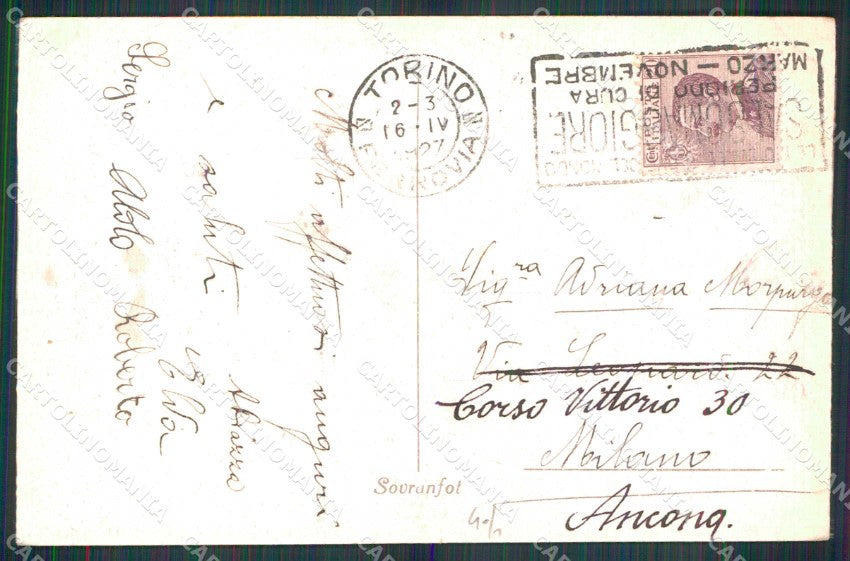 Molti affettuosi auguri
e saluti
Elda
Sergio Aldo Roberto
TORINO
2-3
16·IV
1927
FERROVIA
PERIODO DI CURA
MARZO — NOVEMBRE
Sig.ra Adriana Morpurgo
Via Leopardi 22
Corso Vittorio 30
Milano
Ancona.
Sovranfot
CARTOLINOMANIA